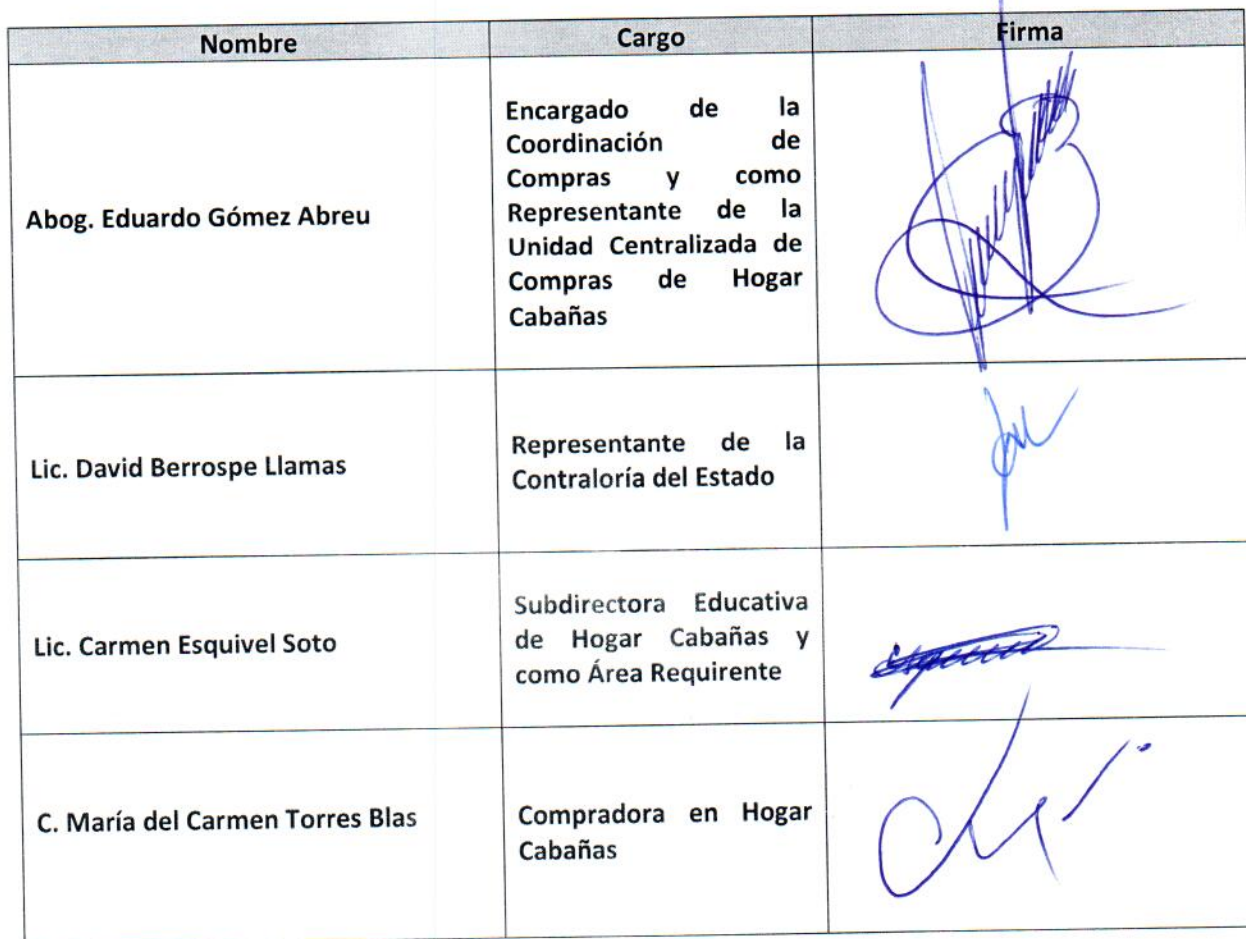 Nombre Cargo Firma
Abog. Eduardo Gómez Abreu
Encargado de la
Coordinación de
Compras y como
Representante de la
Unidad Centralizada de
Compras de Hogar
Cabañas
Lic. David Berrospe Llamas
Representante de la
Contraloría del Estado
Lic. Carmen Esquivel Soto
Subdirectora Educativa
de Hogar Cabañas y
como Área Requirente
C. María del Carmen Torres Blas
Compradora en Hogar
Cabañas